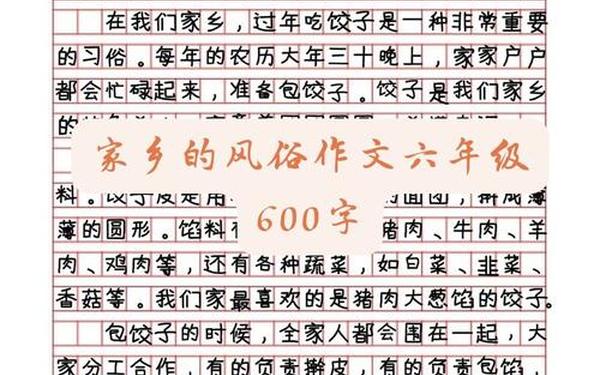 在我们家乡,过年吃饺子是一种非常重要
的习俗。每年的农历大年三十晚上,家家户户
都会忙碌起来,准备包饺子。饺子是我们家乡
的
家乡的风俗作文六年级
料。饺子皮是用 的面团,擀成薄
600字
薄的圆形。馅料有 猪肉、牛肉、羊
肉、鸡肉等,还有各种蔬菜,如白菜、韭菜、
香菇等。我们家最喜欢的是猪肉大葱馅的饺子。
包饺子的时候,全家人都会围在一起,大
家分工合作,有的负责擀皮,有的负责包馅,